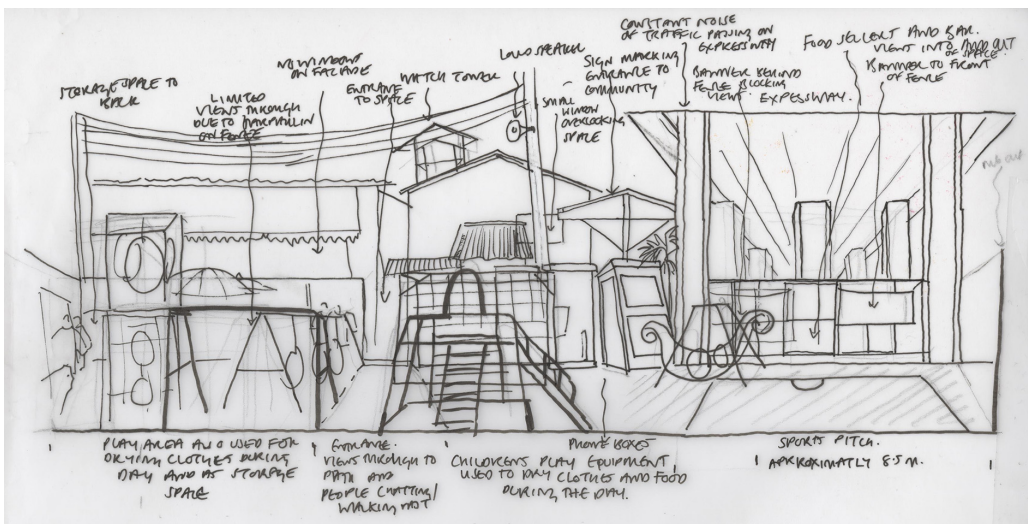 STORAGE SPACE TO
BACK
LIMITED
VIEWS THROUGH
DUE TO TARPAULIN
ON FENCE
NO WINDOWS
ON FACADE
ENTRANCE
TO SPACE
WATCH TOWER
LOUD SPEAKER
SMALL
WINDOW
OVERLOOKING
SPACE
SIGN MARKING
ENTRANCE TO
COMMUNITY
CONSTANT NOISE
OF TRAFFIC PASSING ON
EXPRESSWAY
BANNER BEHIND
FENCE BLOCKING
VIEW EXPESSWAY.
FOOD SELLERS AND BAR.
VIEW INTO AND OUT
OF SPACE.
BANNER TO FRONT
OF FENCE
PLAY AREA ALSO USED FOR
DRYING CLOTHES DURING
DAY AND AS STORAGE
SPACE
ENTRANCE.
VIEWS THROUGH TO
PATH AND
PEOPLE CHATTING/
WALKING PAST
PHONE BOXES
CHILDRENS PLAY EQUIPMENT,
USED TO DRY CLOTHES AND FOOD
DURING THE DAY.
SPORTS PITCH.
APPROXIMATLY 8.5M.